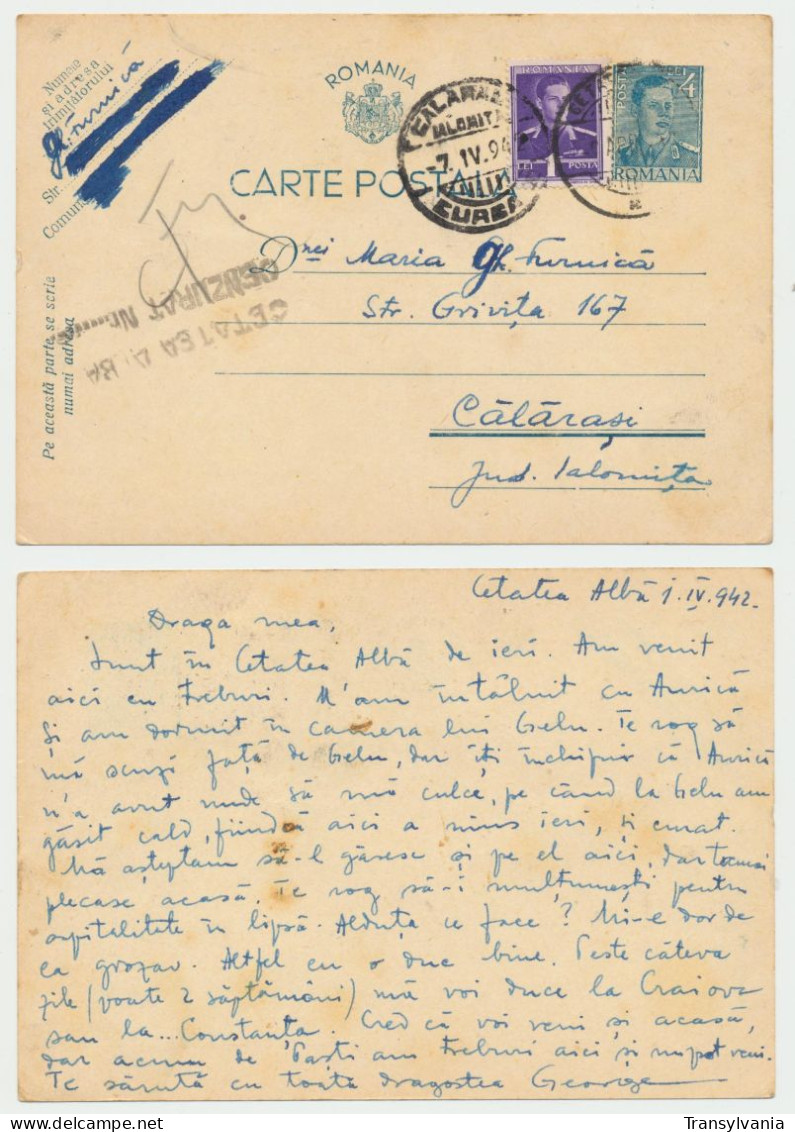 Numele
și adresa
trimițătorului
Gh. Furnică
Str.
Comuna
ROMANIA
CARTE POSTALĂ
CALARASI
IALOMITA
-7.IV.94
ROMANIA
LEI 1 POSTA
POSTA LEI 4
ROMANIA
CENZURAT Nr......
CETATEA ALBA
Pe această parte se scrie
numai adresa
Dnei Maria Gh. Furnică
Str. Grivița 167
Călărași
Jud. Ialomița
Cetatea Albă 1.IV.942.
Draga mea,
Sunt în Cetatea Albă de ieri. Am venit
aici cu treburi. M'am întâlnit cu Aurică
și am dormit în camera lui Gelu. Te rog să
mă scuzi față de Gelu, dar îți închipui că Aurică
n'a avut unde să mă culce, pe când la Gelu am
găsit cald, fiindcă aici a nins ieri, și curat.
Mă așteptam să-l găsesc și pe el aici, dar tocmai
plecase acasă. Te rog să-i mulțumești pentru
ospitalitate în lipsă. Alduța ce face? Mi-e dor de
ea grozav. Altfel eu o duc bine. Peste câteva
zile (poate 2 săptămâni) mă voi duce la Craiova
sau la... Constanța. Cred că voi veni și acasă,
dar acum de Paști am treburi aici și nu pot veni.
Te sărută cu toată dragostea George
Transylvania